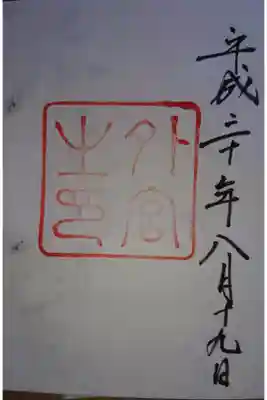 平成二十年八月十九日
外宮
之印